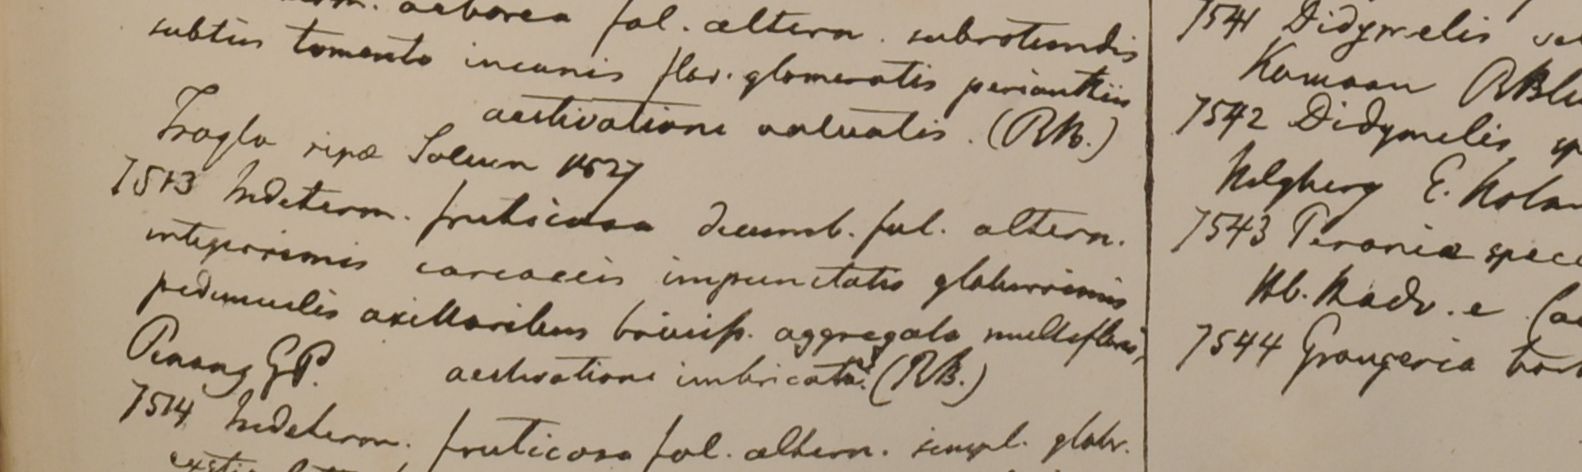 arborea fol. altern. subrotundis
subtus tomento incanis flor. glomeratis perianthii
aestivatione valvatis. (RBr.)
Trogla ripae Saluen 1827
7513 Indeterm. fruticosa decumb. fol. altern.
integerrimis coreaceis impunctatis glaberrimis
pedunculis axillaribus breviss. aggregatis multifloris,
Penang GP. aestivatione imbricata. (RB.)
7514 Indeterm. fruticosa fol. altern. simpl. glabr.
7541 Didymelis
Kamaon RBl
7542 Didymelis sp
Nilgherry E. Nolan
7543 Peronia spec
Hb. Madr. e
7544 Grangeria bor